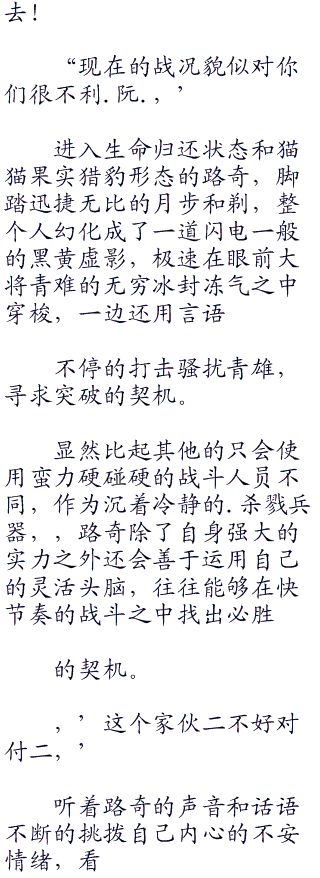 去！
“现在的战况貌似对你
们很不利.阮.，’
进入生命归还状态和猫
猫果实猎豹形态的路奇，脚
踏迅捷无比的月步和剃，整
个人幻化成了一道闪电一般
的黑黄虚影，极速在眼前大
将青难的无穷冰封冻气之中
穿梭，一边还用言语
不停的打击骚扰青雄，
寻求突破的契机。
显然比起其他的只会使
用蛮力硬碰硬的战斗人员不
同，作为沉着冷静的.杀戮兵
器，，路奇除了自身强大的
实力之外还会善于运用自己
的灵活头脑，往往能够在快
节奏的战斗之中找出必胜
的契机。
，’这个家伙二不好对
付二，’
听着路奇的声音和话语
不断的挑拨自己内心的不安
情绪，看